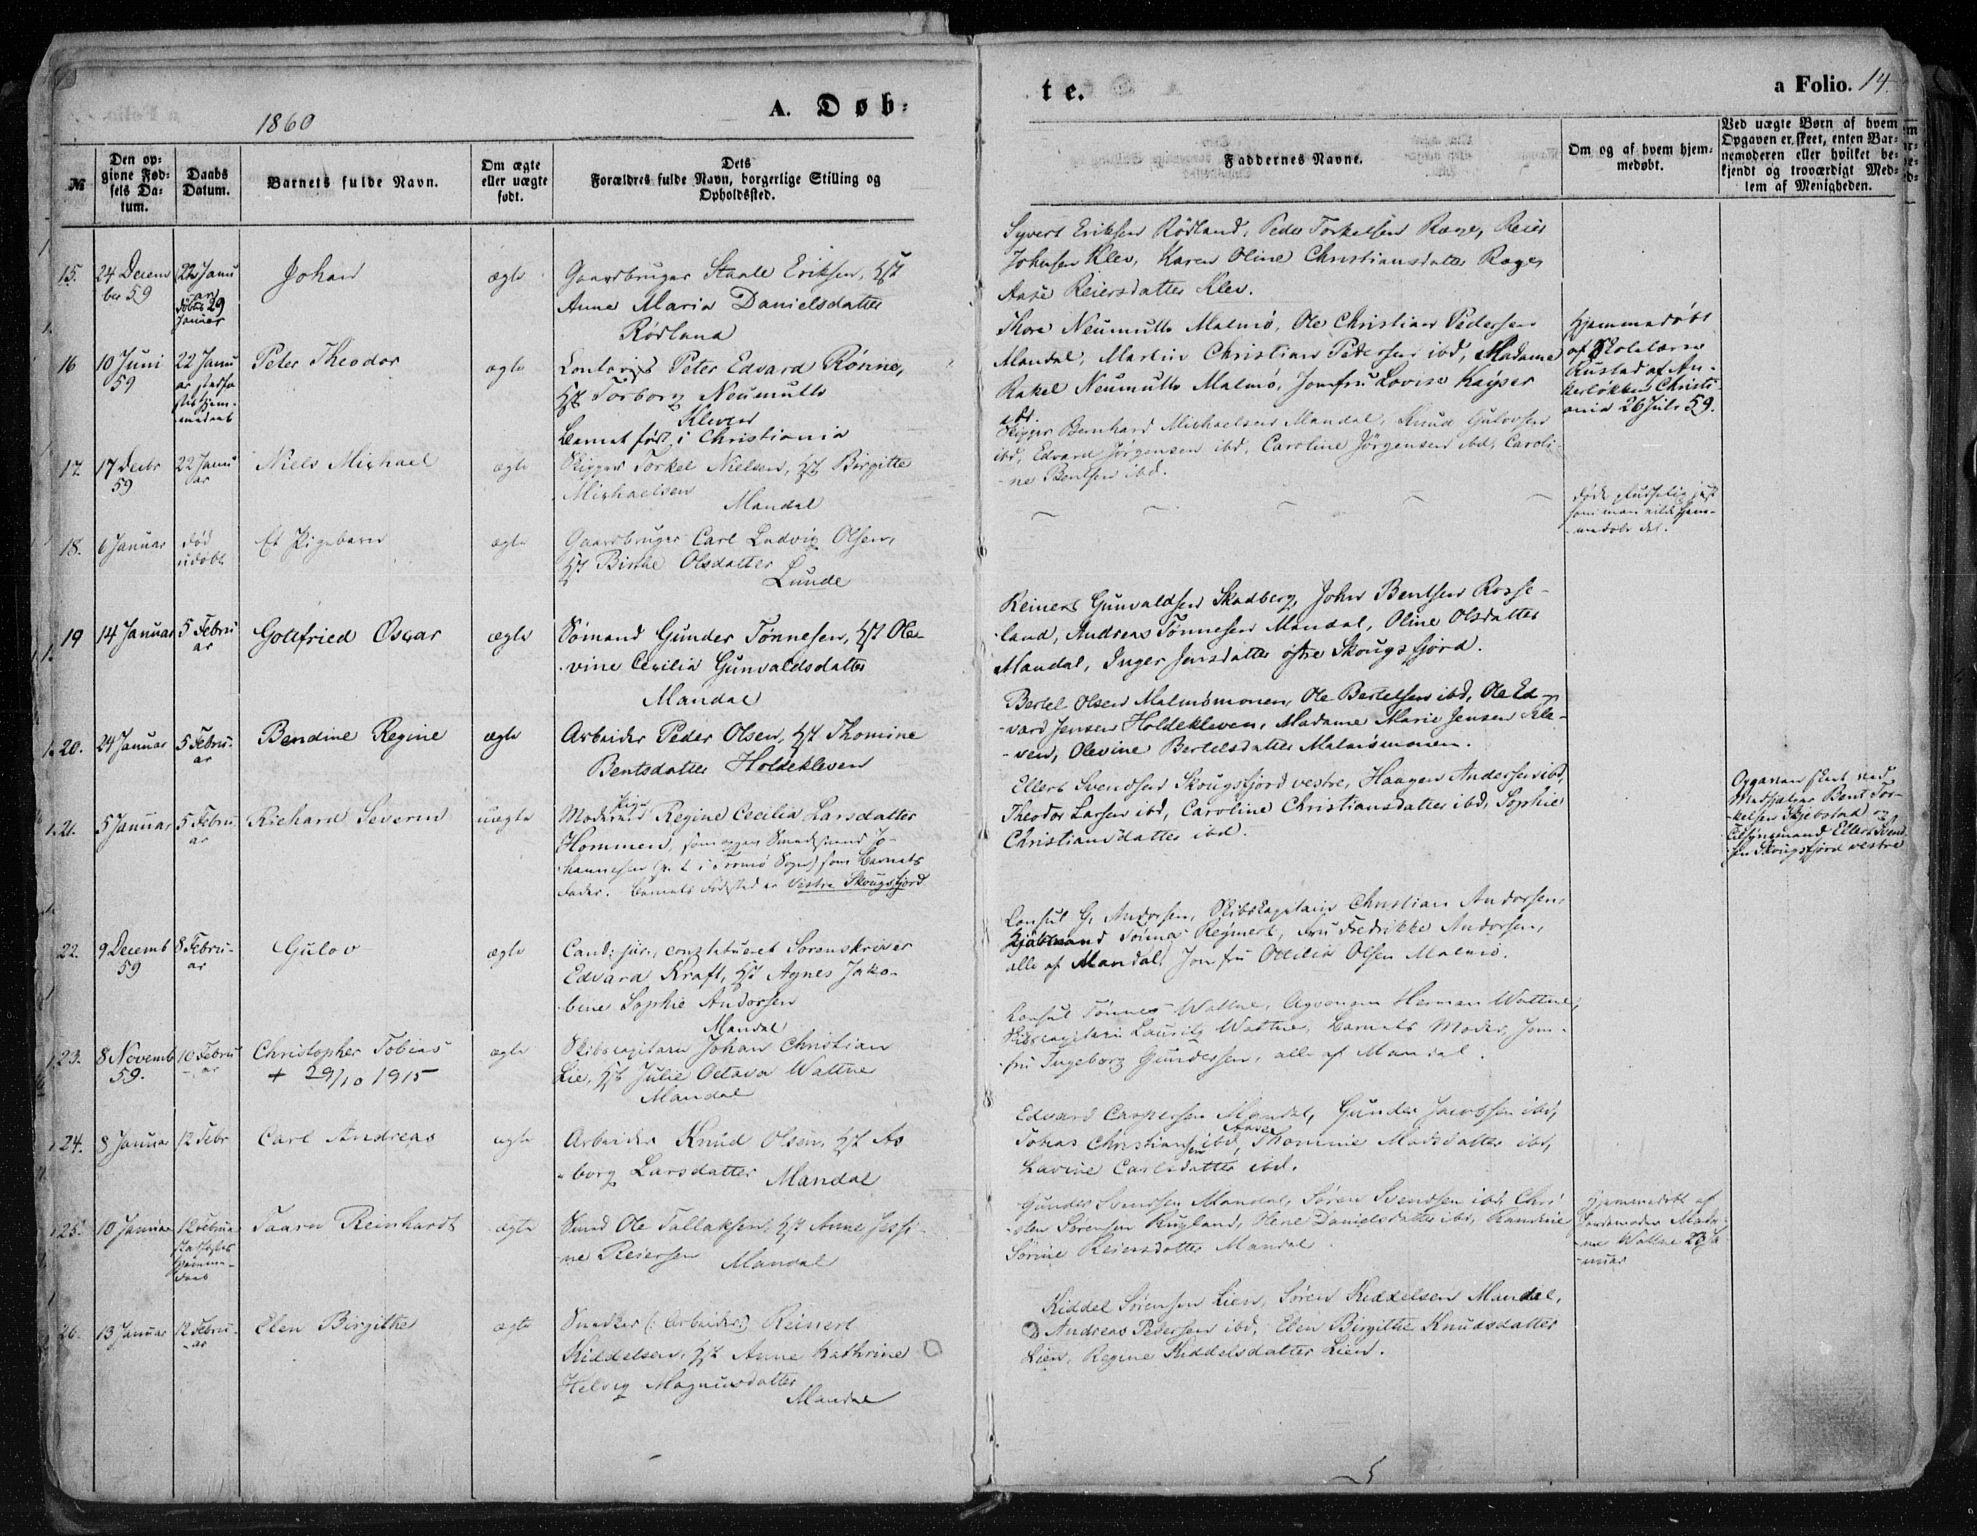 1860
A. Døb-
te.
a Folio. 14
№
Den op-
givne Fød-
sels Da-
tum.
Daabs
Datum.
Barnets fulde Navn.
Om ægte
eller uægte
født.
Dets
Forældres fulde Navn, borgerlige Stilling og
Opholdssted.
Faddernes Navne.
Om og af hvem hjem-
medøbt.
Ved uægte Børn af hvem
Opgaven er skeet, enten Bar-
nemoderen eller hvilket be-
kjendt og troværdigt Med-
lem af Menigheden.
15.
24 Decem
ber 59
22 Janu
ar
døbt 29
Januar
Johan
ægte
Gaardbruger Staale Eriksen, Hst
Anne Maria Danielsdatter
Rødland
Syvert Eriksen Rødland, Peder Torkelsen Røge, Reier
Johnsen Klev, Karen Oline Christiansdatter Røge,
Aase Reiersdatter Klev.
16
10 Juni
59
22 Janu
ar
Peter Theodor
ægte
Peter Edvard Rønne,
Hst Torborg Neumutte
Klever
Barnet født i Christiania
Thore Neumutte Malmø, Ole Christian Pedersen
Mandal, Martin Christian Pedersen ibd, Madame
Rakel Neumutte Malmø, Jomfru Lovise Kayser
ibd.
Hjemmedøbt
af Skolelærer
Rustad af An-
kerløkken Christi-
ania 26 Juli 59.
17.
17 Decbr
59
22 Janu
ar
Niels Michael
ægte
Skipper Torkel Nielsen, Hst Birgitte
Michaelsen
Mandal
Skipper Bernhard Michaelsen Mandal, Knud Gulovsen
ibd, Edvard Jørgensen ibd, Caroline Jørgensen ibd, Caroli-
ne Bentsen ibd.
18.
6 Januar
død
udøbt
Et Pigebarn
ægte
Gaardbruger Carl Ludvig Olsen,
Hst Birthe Olsdatter
Lunde
døde pludselig just
som man vilde hjem-
medøbe det.
19
14 Januar
5 Febru
ar
Gottfried Oscar
ægte
Sømand Gunder Tønnesen, Hst Ole-
vine Cecilia Gunvaldsdatter
Mandal
Reinert Gunvaldsen Skadberg, John Bentsen Rosse-
land, Andreas Tønnesen Mandal, Oline Olsdatter
Mandal, Inger Jensdatter østre Skougsfjord.
20.
24 Januar
5 Febru-
ar
Bendine Regine
ægte
Arbeider Peder Olsen, Hst Thomine
Bentsdatter Holdekleven
Bertel Olsen Malmømonen, Ole Bertelsen ibd, Ole Ed-
vard Jensen Holdekleven, Madame Marie Jensen Kle-
ven, Olevine Bertelsdatter Malmømonen.
21.
5 Januar
5 Febru
ar
Richard Severin
uægte
Moderen Pige Regine Cecilia Larsdatter
Hommen, som opgav Smedsvend Jo-
hannesen (p. t. i Tromø Sogn) som Barnets
Fader. Barnets Fødested er Vestre Skougsfjord
Ellert Svendsen Skougsfjord vestre, Haagen Andersen ibd,
Theodor Larsen ibd, Caroline Christiansdatter ibd, Sophie
Christiansdatter ibd.
Opgaven skeet ved
Medhjelper Bent Tor-
kelsen Skjebstad og
Tilsynsmand Ellert Svend
sen Skougsfjord vestre
22.
9 Decemb
59
8 Febru-
ar
Gulov
ægte
Cand: jur:, constitueret Sorenskriver
Edvard Kraft, Hst Agnes Jako-
bine Sophie Andorsen
Mandal
Consul G. Andorsen, Skibskapitain Christian Andorsen,
Kjøbmand Tønnes Reinert, Fru Fredrikke Andorsen,
alle af Mandal, Jomfru Ottilia Olsen Malmø.
23.
8 Novemb
59.
10 Febru
ar
Christopher Tobias
+ 29/10 1915
ægte
Skibscapitain Johan Christian
Lie, Hst Julie Octava Wattne
Mandal
Consul Tønnes Wattne, Herman Wattne,
Skibscapitain Lauritz Wattne, Barnets Moder, Jom-
fru Ingeborg Gundersen, alle af Mandal.
24.
8 Januar
12 Febr
Carl Andreas
ægte
Arbeider Knud Olsen, Hst As
borg Larsdatter Mandal
Edvard Caspersen Mandal, Gunder Jacobsen ibd,
Tobias Christiansen ibd, Aase Thomine Madsdatter ibd,
Lavine Carlsdatter ibd.
25.
10 Januar
12 Febru
Taarn Reinhardt
ægte
Smed Ole Tallaksen, Hst Anne Jessi-
ne Reiersen Mandal
Gunder Svendsen Mandal, Søren Svendsen ibd, Chri
sten Sørensen Rugland, Olene Danielsdatter ibd, Randine
Sørine Reiersdatter Mandal.
Hjemmedøbt af
Jordemoder Mad-
me Wattne 23 Ja
nuar
26.
13 Januar
12 Febru-
ar
Elen Birgithe
ægte
Snedker (: Arbeider:) Reinert
Kiddelsen, Hst Anne Kathrine
Helvig Magnusdatter
Mandal
Kiddel Sørensen Lien, Søren Kiddelsen Mandal,
Andreas Pedersen ibd, Elen Birgitte Knudsdatter
Lien, Regine Kiddelsdatter Lien.